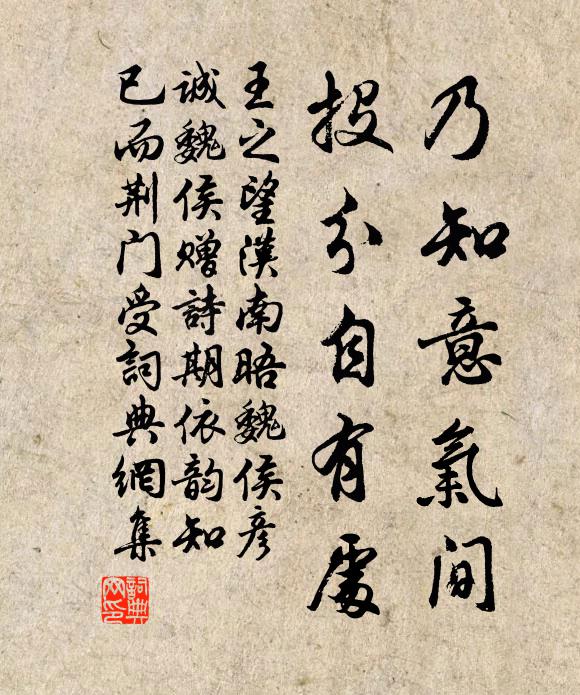 乃知意氣间
投分自有處
王之望漢南晤魏侯彦
诚魏侯赠詩期依韵知
已而荆门受詞典網集
詞典
网印